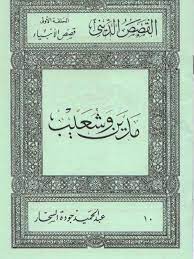 القصص الديني
الحلقة الأولى
قصص الأنبياء
مدين وشعيب
١٠
عبد الحميد جودة السحار